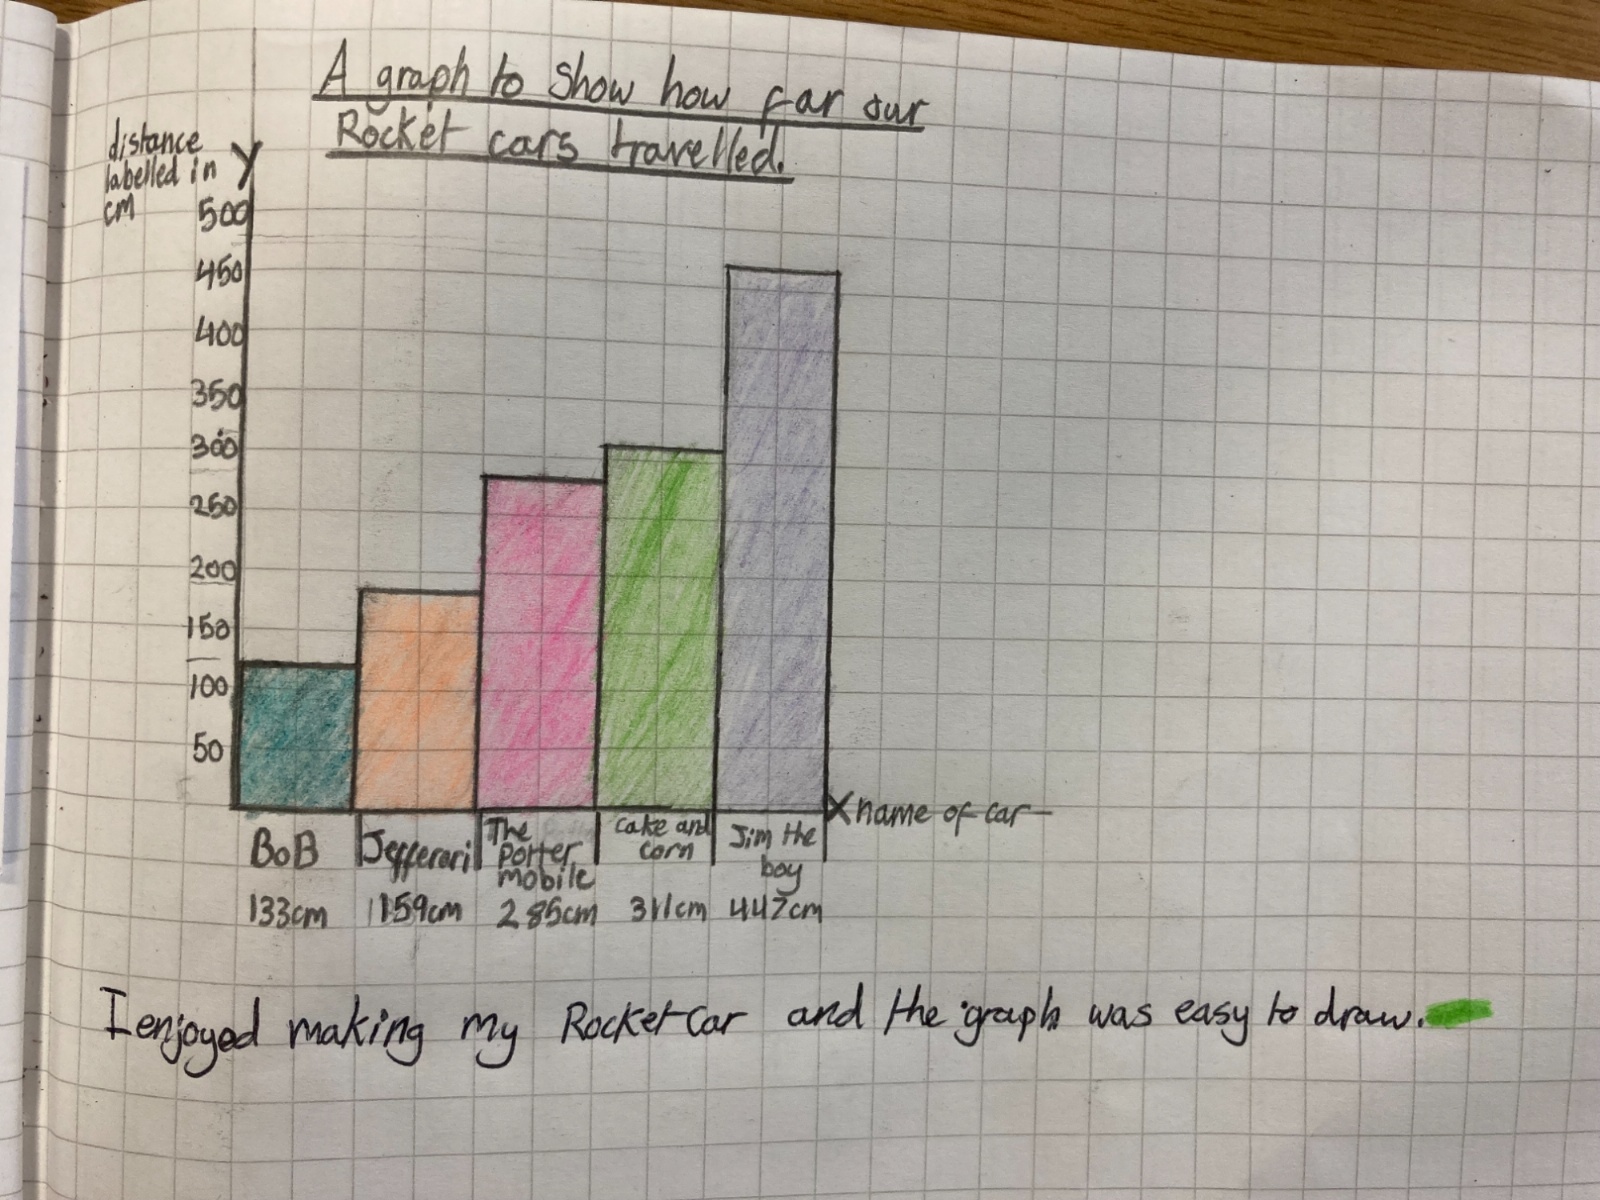 A graph to show how far our
Rocket cars travelled.
distance
labelled in
cm
y
500
450
400
350
300
250
200
150
100
50
X name of car
BoB
Jefferari
The
Potter
mobile
cake and
corn
Jim the
boy
133cm
159cm
285cm
311cm
447cm
I enjoyed making my Rocket Car and the graph was easy to draw.